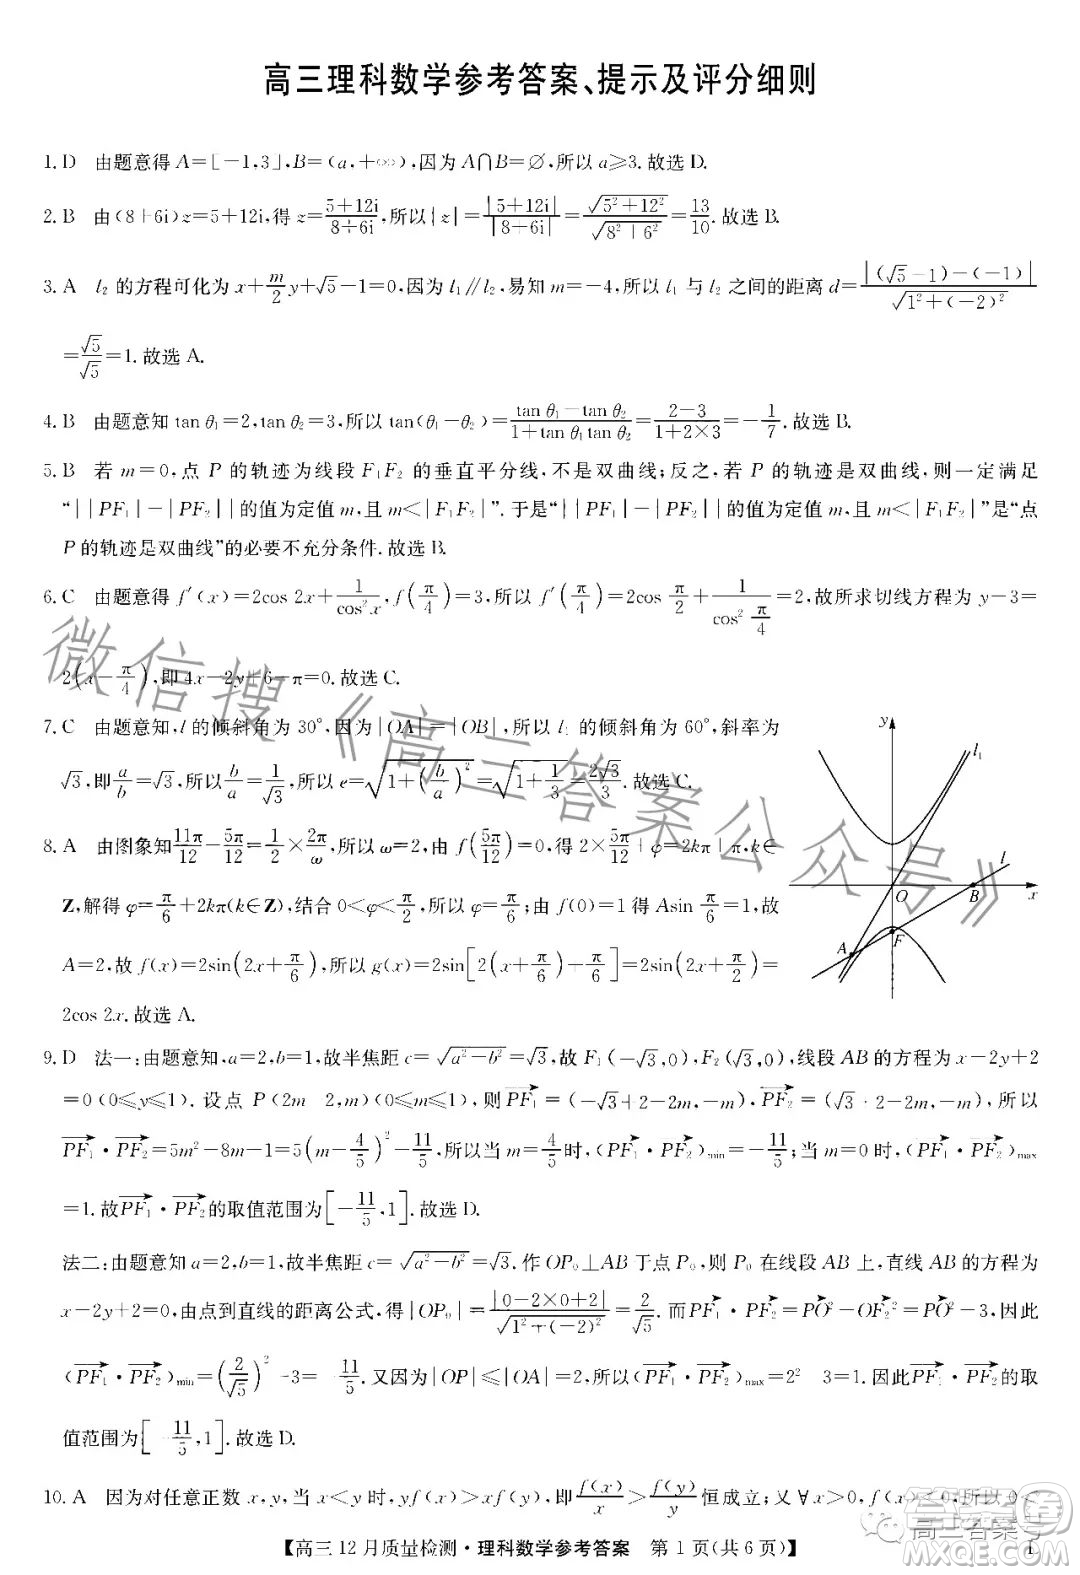 高三理科数学参考答案、提示及评分细则
1. D 由题意得 A=[-1,3],B=(a,+∞),因为 A∩B=∅,所以 a≥3. 故选 D.
2. B 由(8+6i)z=5+12i,得 z=\frac{5+12i}{8+6i},所以|z|=\frac{|5+12i|}{|8+6i|}=\frac{\sqrt{5^2+12^2}}{\sqrt{8^2+6^2}}=\frac{13}{10}. 故选 B.
3. A l₂ 的方程可化为 x+\frac{m}{2}y+√5-1=0,因为 l₁∥l₂,易知 m=-4,所以 l₁ 与 l₂ 之间的距离 d=\frac{|(\sqrt{5}-1)-(-1)|}{\sqrt{1^2+(-2)^2}}
=\frac{\sqrt{5}}{\sqrt{5}}=1. 故选 A.
4. B 由题意知 tan θ₁=2,tan θ₂=3,所以 tan(θ₁-θ₂)=\frac{tan θ₁-tan θ₂}{1+tan θ₁tan θ₂}=\frac{2-3}{1+2×3}=-\frac{1}{7}. 故选 B.
5. B 若 m=0,点 P 的轨迹为线段 F₁F₂ 的垂直平分线,不是双曲线;反之,若 P 的轨迹是双曲线,则一定满足
“||PF₁|-|PF₂||的值为定值 m,且 m<|F₁F₂|”. 于是“||PF₁|-|PF₂||的值为定值 m,且 m<|F₁F₂|”是“点
P 的轨迹是双曲线”的必要不充分条件. 故选 B.
6. C 由题意得 f′(x)=2cos 2x+\frac{1}{cos²x},f(\frac{π}{4})=3,所以 f′(\frac{π}{4})=2cos \frac{π}{2}+\frac{1}{cos²\frac{π}{4}}=2,故所求切线方程为 y-3=
2(x-\frac{π}{4}),即 4x-2y+6-π=0. 故选 C.
7. C 由题意知,l 的倾斜角为 30°,因为|OA|=|OB|,所以 l₁ 的倾斜角为 60°,斜率为
√3,即\frac{a}{b}=√3,所以\frac{b}{a}=\frac{1}{\sqrt{3}},所以 e=\sqrt{1+(\frac{b}{a})^2}=\sqrt{1+\frac{1}{3}}=\frac{2\sqrt{3}}{3}. 故选 C.
8. A 由图象知\frac{11π}{12}-\frac{5π}{12}=\frac{1}{2}×\frac{2π}{ω},所以 ω=2,由 f(\frac{5π}{12})=0,得 2×\frac{5π}{12}+φ=2kπ+π,k∈
Z,解得 φ=\frac{π}{6}+2kπ(k∈Z),结合 0<φ<\frac{π}{2},所以 φ=\frac{π}{6};由 f(0)=1 得 Asin \frac{π}{6}=1,故
A=2,故 f(x)=2sin(2x+\frac{π}{6}),所以 g(x)=2sin[2(x+\frac{π}{6})+\frac{π}{6}]=2sin(2x+\frac{π}{2})=
2cos 2x. 故选 A.
y
l₁
l
O
B
x
A
F
9. D 法一:由题意知,a=2,b=1,故半焦距 c=\sqrt{a²-b²}=√3,故 F₁(-√3,0),F₂(√3,0),线段 AB 的方程为 x-2y+2
=0(0≤y≤1). 设点 P(2m-2,m)(0≤m≤1),则\vec{PF₁}=(-√3+2-2m,-m),\vec{PF₂}=(√3+2-2m,-m),所以
\vec{PF₁}·\vec{PF₂}=5m²-8m+1=5(m-\frac{4}{5})²-\frac{11}{5},所以当 m=\frac{4}{5}时,(\vec{PF₁}·\vec{PF₂})min=-\frac{11}{5};当 m=0 时,(\vec{PF₁}·\vec{PF₂})max
=1. 故\vec{PF₁}·\vec{PF₂}的取值范围为[-\frac{11}{5},1]. 故选 D.
法二:由题意知 a=2,b=1,故半焦距 c=\sqrt{a²-b²}=√3. 作 OP₀⊥AB 于点 P₀,则 P₀ 在线段 AB 上,直线 AB 的方程为
x-2y+2=0,由点到直线的距离公式,得|OP₀|=\frac{|0-2×0+2|}{\sqrt{1²+(-2)²}}=\frac{2}{\sqrt{5}}. 而\vec{PF₁}·\vec{PF₂}=\vec{PO}²-\vec{OF₂}²=\vec{PO}²-3,因此
(\vec{PF₁}·\vec{PF₂})min=(\frac{2}{\sqrt{5}})²-3=-\frac{11}{5}. 又因为|OP|≤|OA|=2,所以(\vec{PF₁}·\vec{PF₂})max=2²-3=1. 因此\vec{PF₁}·\vec{PF₂}的取
值范围为[-\frac{11}{5},1]. 故选 D.
10. A 因为对任意正数 x,y,当 x<y 时,yf(x)>xf(y),即\frac{f(x)}{x}>\frac{f(y)}{y}恒成立;又∀x>0,f(x)<0,所以 0<
【高三 12 月质量检测·理科数学参考答案 第 1 页(共 6 页)】
微信搜《高三答案公众号》
高三答案号
答案圈
MXQE.COM